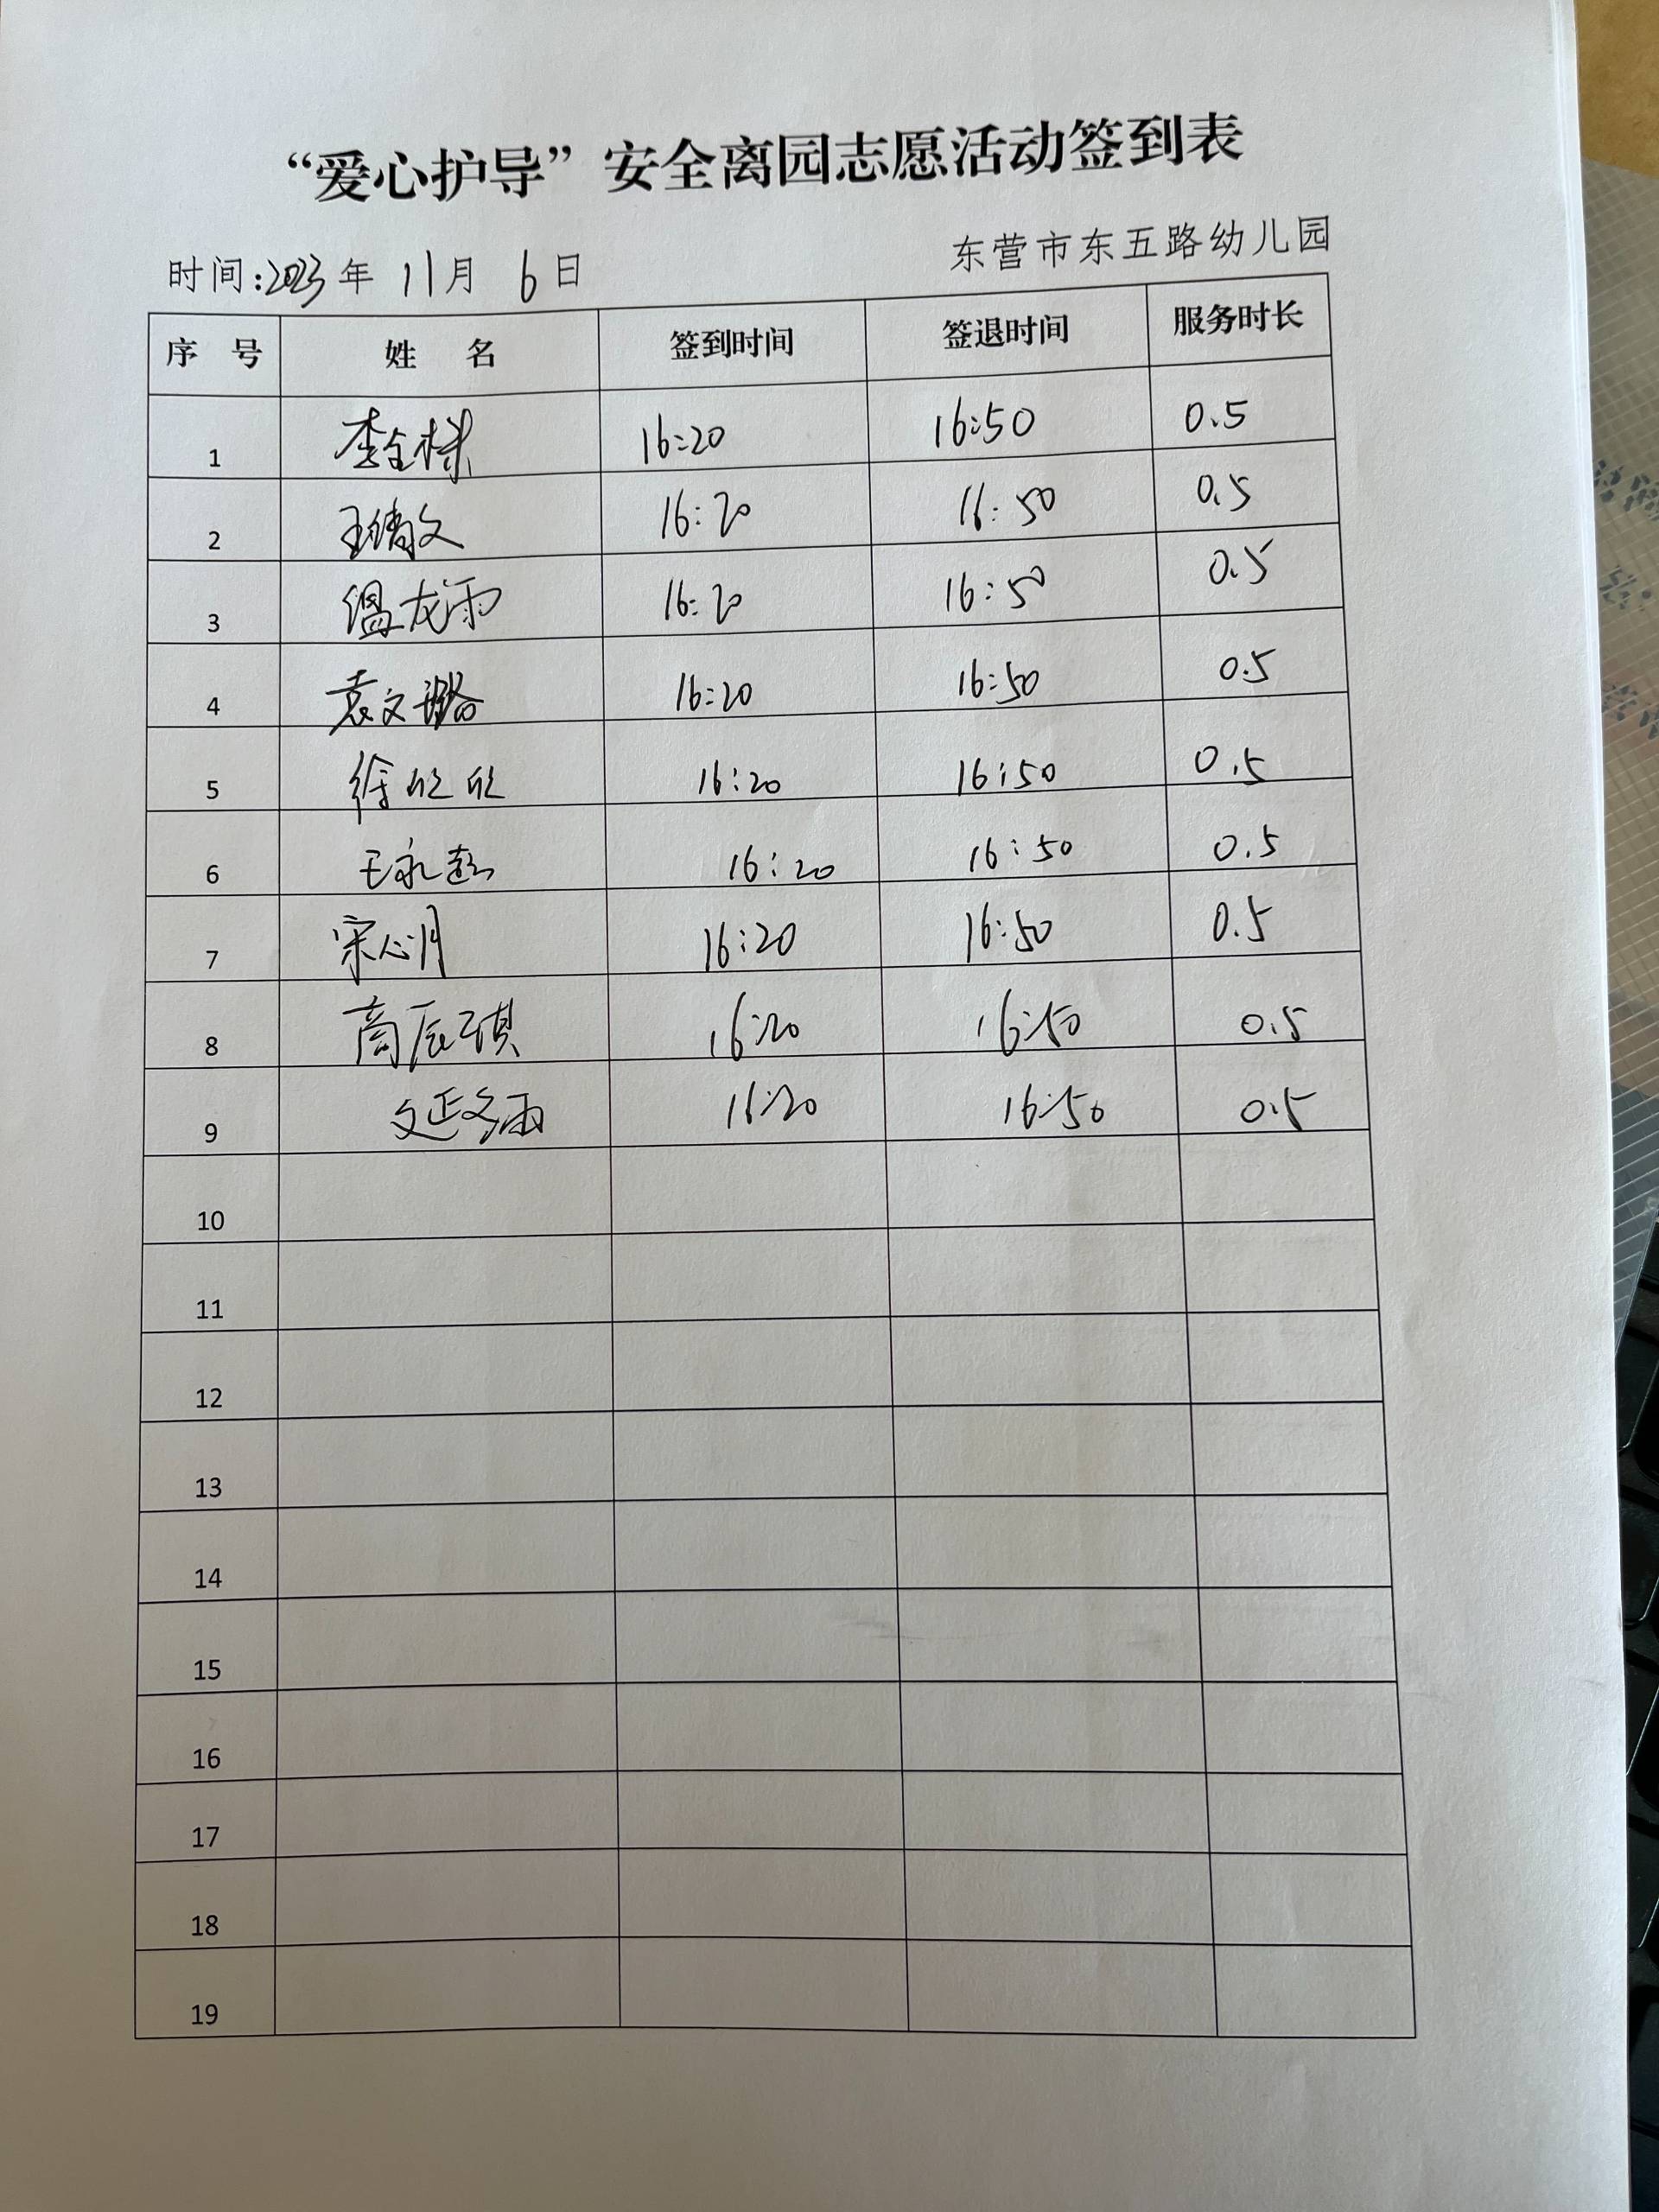 “爱心护导”安全离园志愿活动签到表
时间:2023年 11月 6日 东营市东五路幼儿园
序 号 姓 名 签到时间 签退时间 服务时长
1 李金 16:20 16:50 0.5
2 王倩文 16:20 16:50 0.5
3 温龙雨 16:20 16:50 0.5
4 袁文璐 16:20 16:50 0.5
5 徐欣欣 16:20 16:50 0.5
6 王永超 16:20 16:50 0.5
7 宋心月 16:20 16:50 0.5
8 高辰琪 16:20 16:50 0.5
9 文延冬雨 16:20 16:50 0.5
10
11
12
13
14
15
16
17
18
19